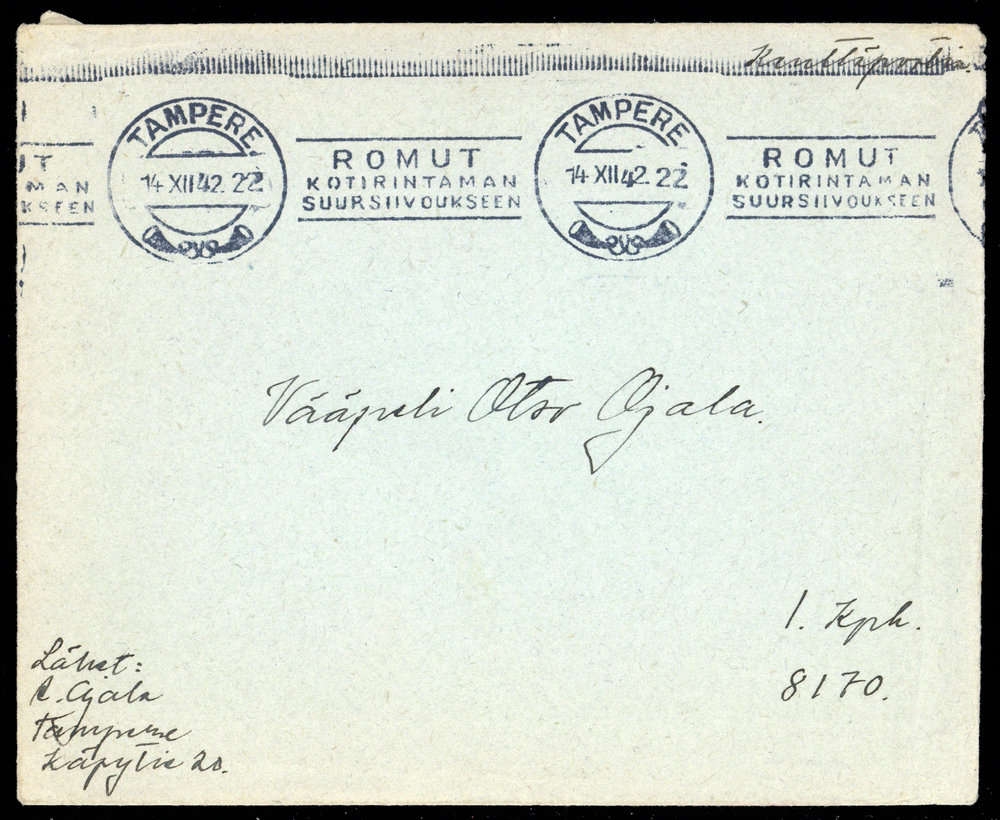 Kenttäpostia.
TAMPERE
14 XII 42. 22
ROMUT
KOTIRINTAMAN
SUURSIIVOUKSEEN
TAMPERE
14 XII 42. 22
ROMUT
KOTIRINTAMAN
SUURSIIVOUKSEEN
UT
MAN
KSEEN
Vääpeli Otso Ojala.
1. Kpk.
8170.
Lähet:
Ojala
Tampere
Käpytie 20.